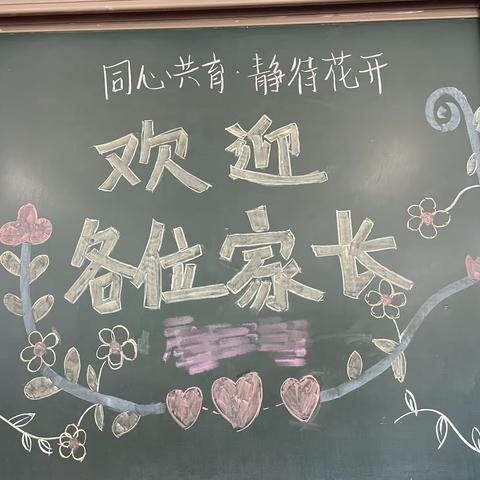 同心共育·静待花开
欢迎
各位家长